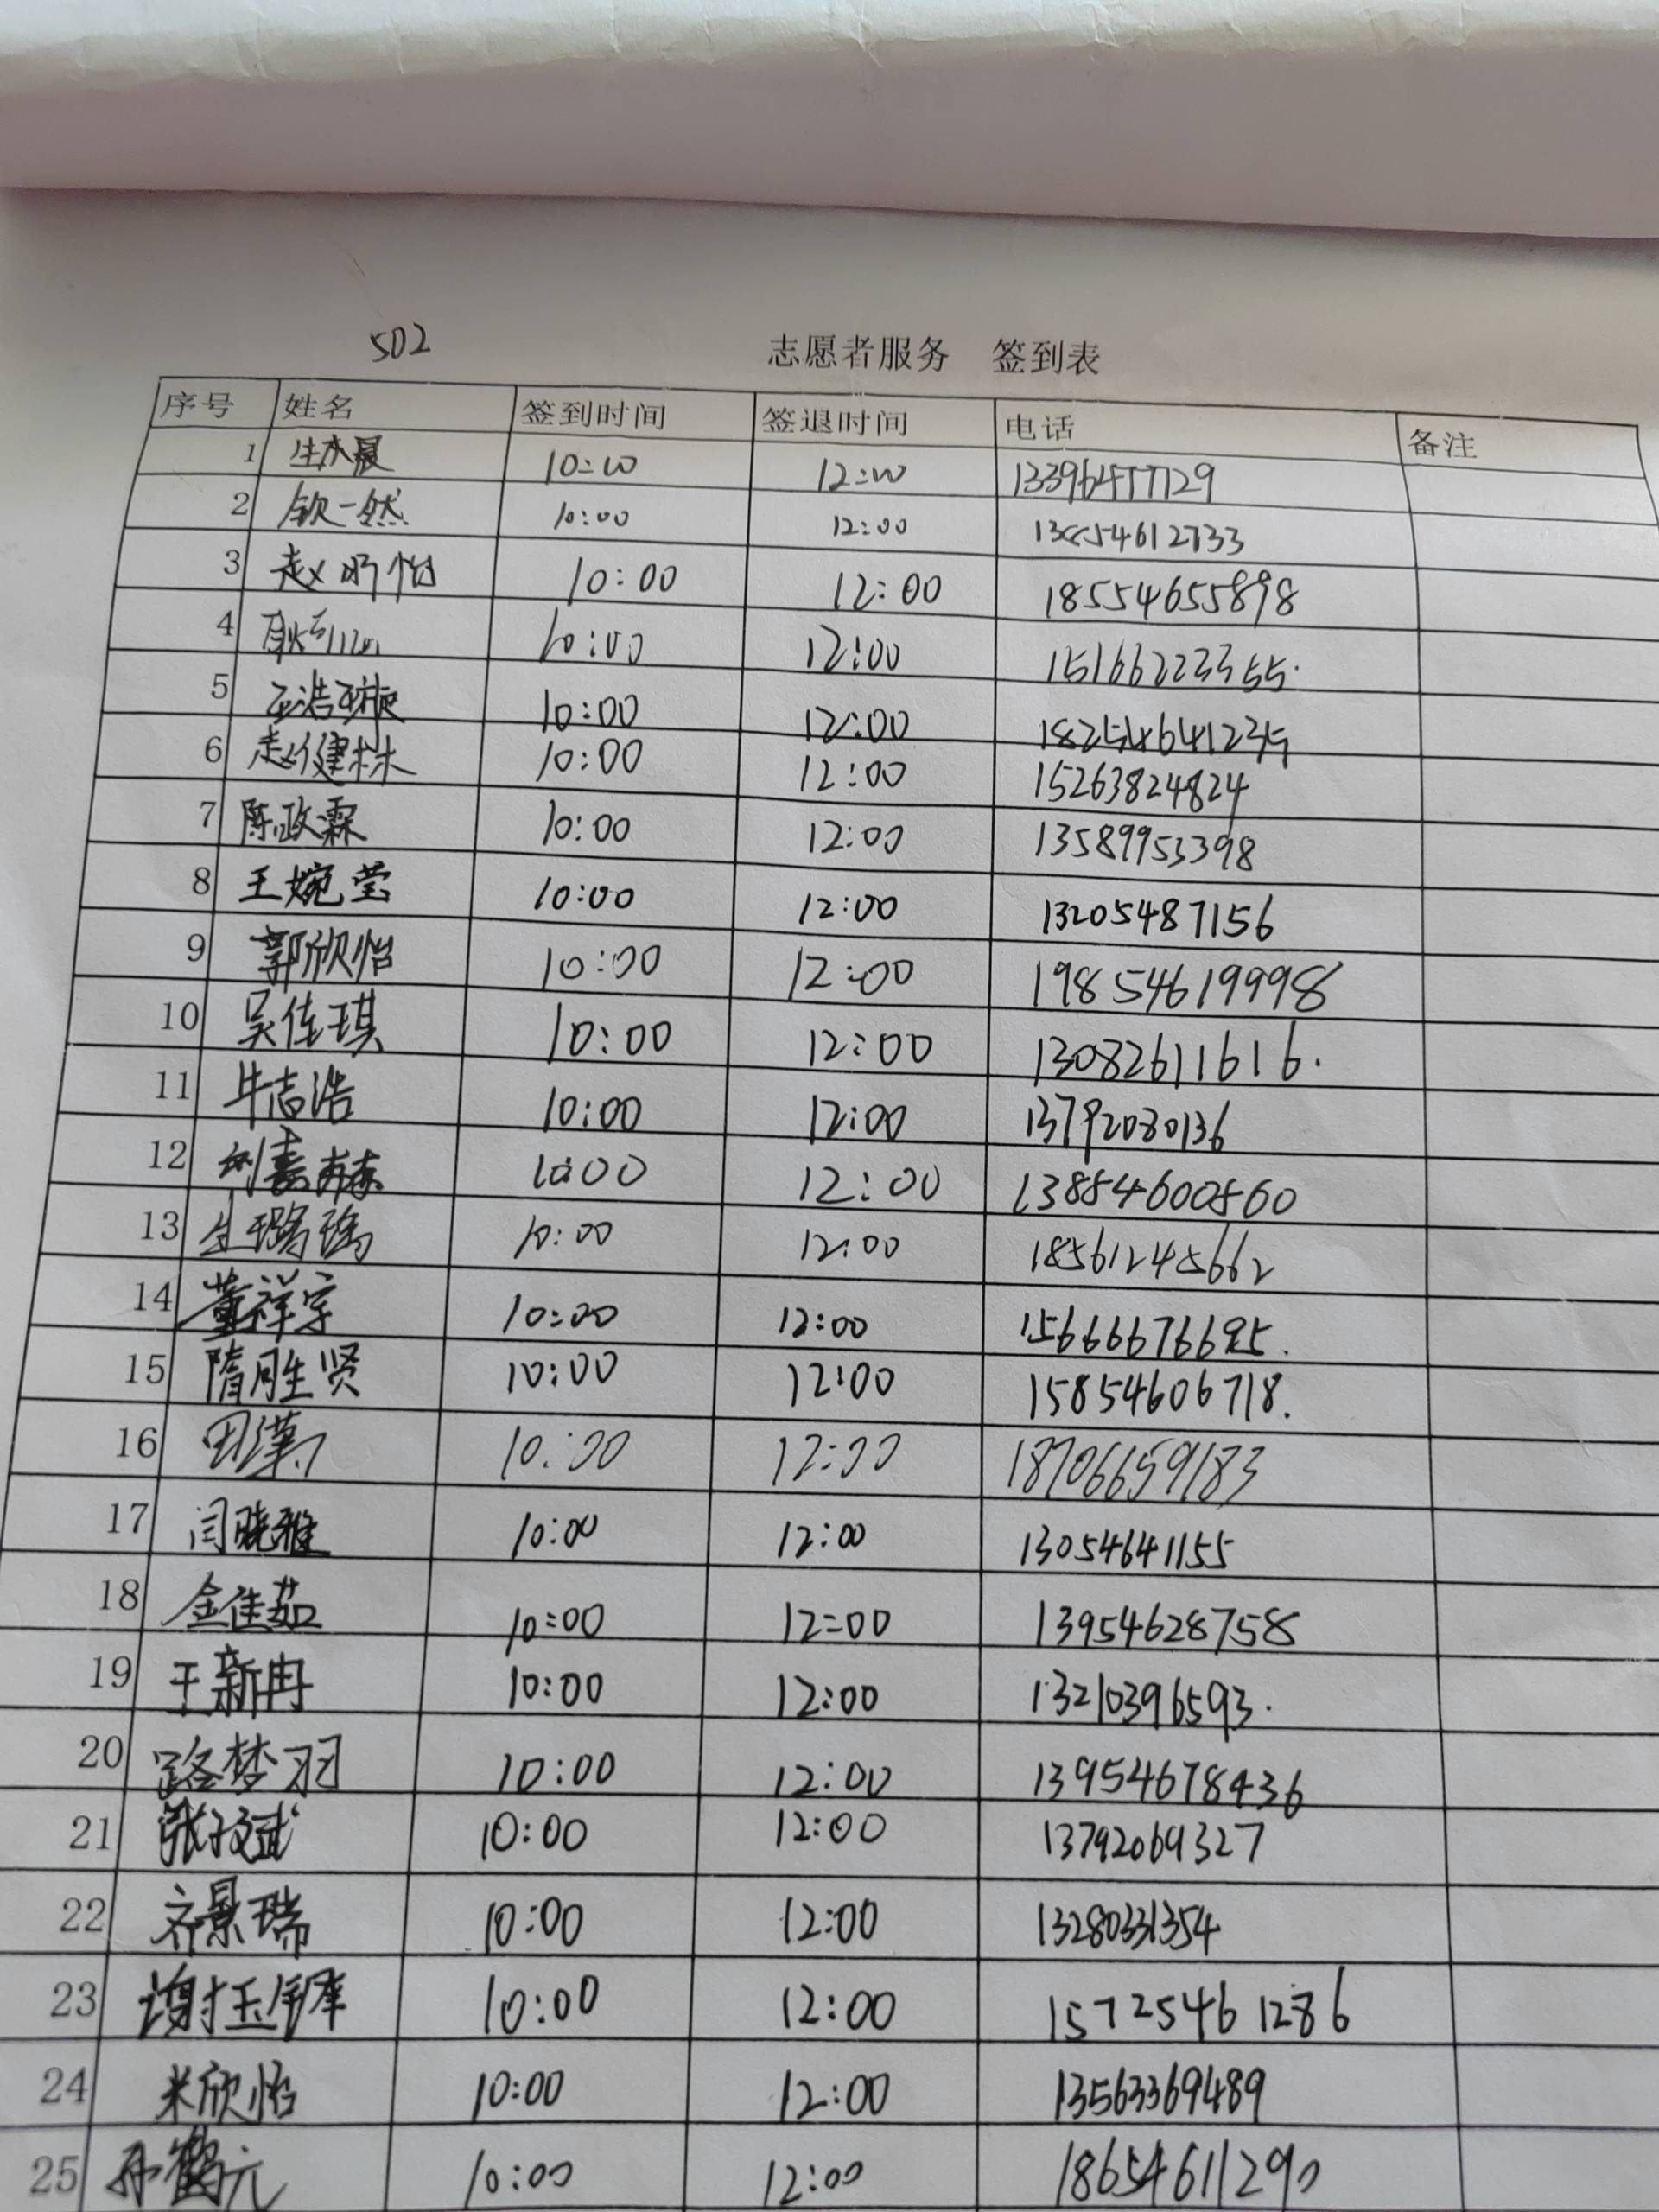 502 志愿者服务 签到表
序号 姓名 签到时间 签退时间 电话 备注
1 生木晨 10:00 12:00
2 钦一然 10:00 12:00
3 赵昕怡 10:00 12:00 18554655898
4 10:00 12:00 15166223355
5 10:00 12:00 18254641235
6 赵健林 10:00 12:00 15263824824
7 陈政霖 10:00 12:00 13589953398
8 王婉莹 10:00 12:00 13205487156
9 郭欣怡 10:00 12:00 19854619998
10 吴佳琪 10:00 12:00 13082611616.
11 牛志浩 10:00 12:00 13792080136
12 10:00 12:00 13854600560
13 生璐瑶 10:00 12:00 18561245662
14 董祥宇 10:00 12:00
15 隋胜贤 10:00 12:00 15854606718.
16 10:00 12:00 18706659183
17 闫晓雅 10:00 12:00 13054641155
18 金佳茹 10:00 12:00 13954628758
19 王新冉 10:00 12:00 13210396593.
20 路梦羽 10:00 12:00 13954678436
21 10:00 12:00 13792069327
22 齐景瑞 10:00 12:00 13280331354
23 谢玉铎 10:00 12:00 15725461286
24 米欣怡 10:00 12:00 13563369489
25 孙鹤元 10:00 12:00 18654611290